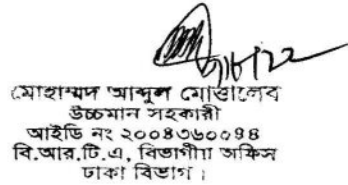 মোহাম্মদ আব্দুল মোত্তালেব
উচ্চমান সহকারী
আইডি নং ২০০৪৩৬০০৭৪
বি.আর.টি.এ, বিভাগীয় অফিস
ঢাকা বিভাগ।